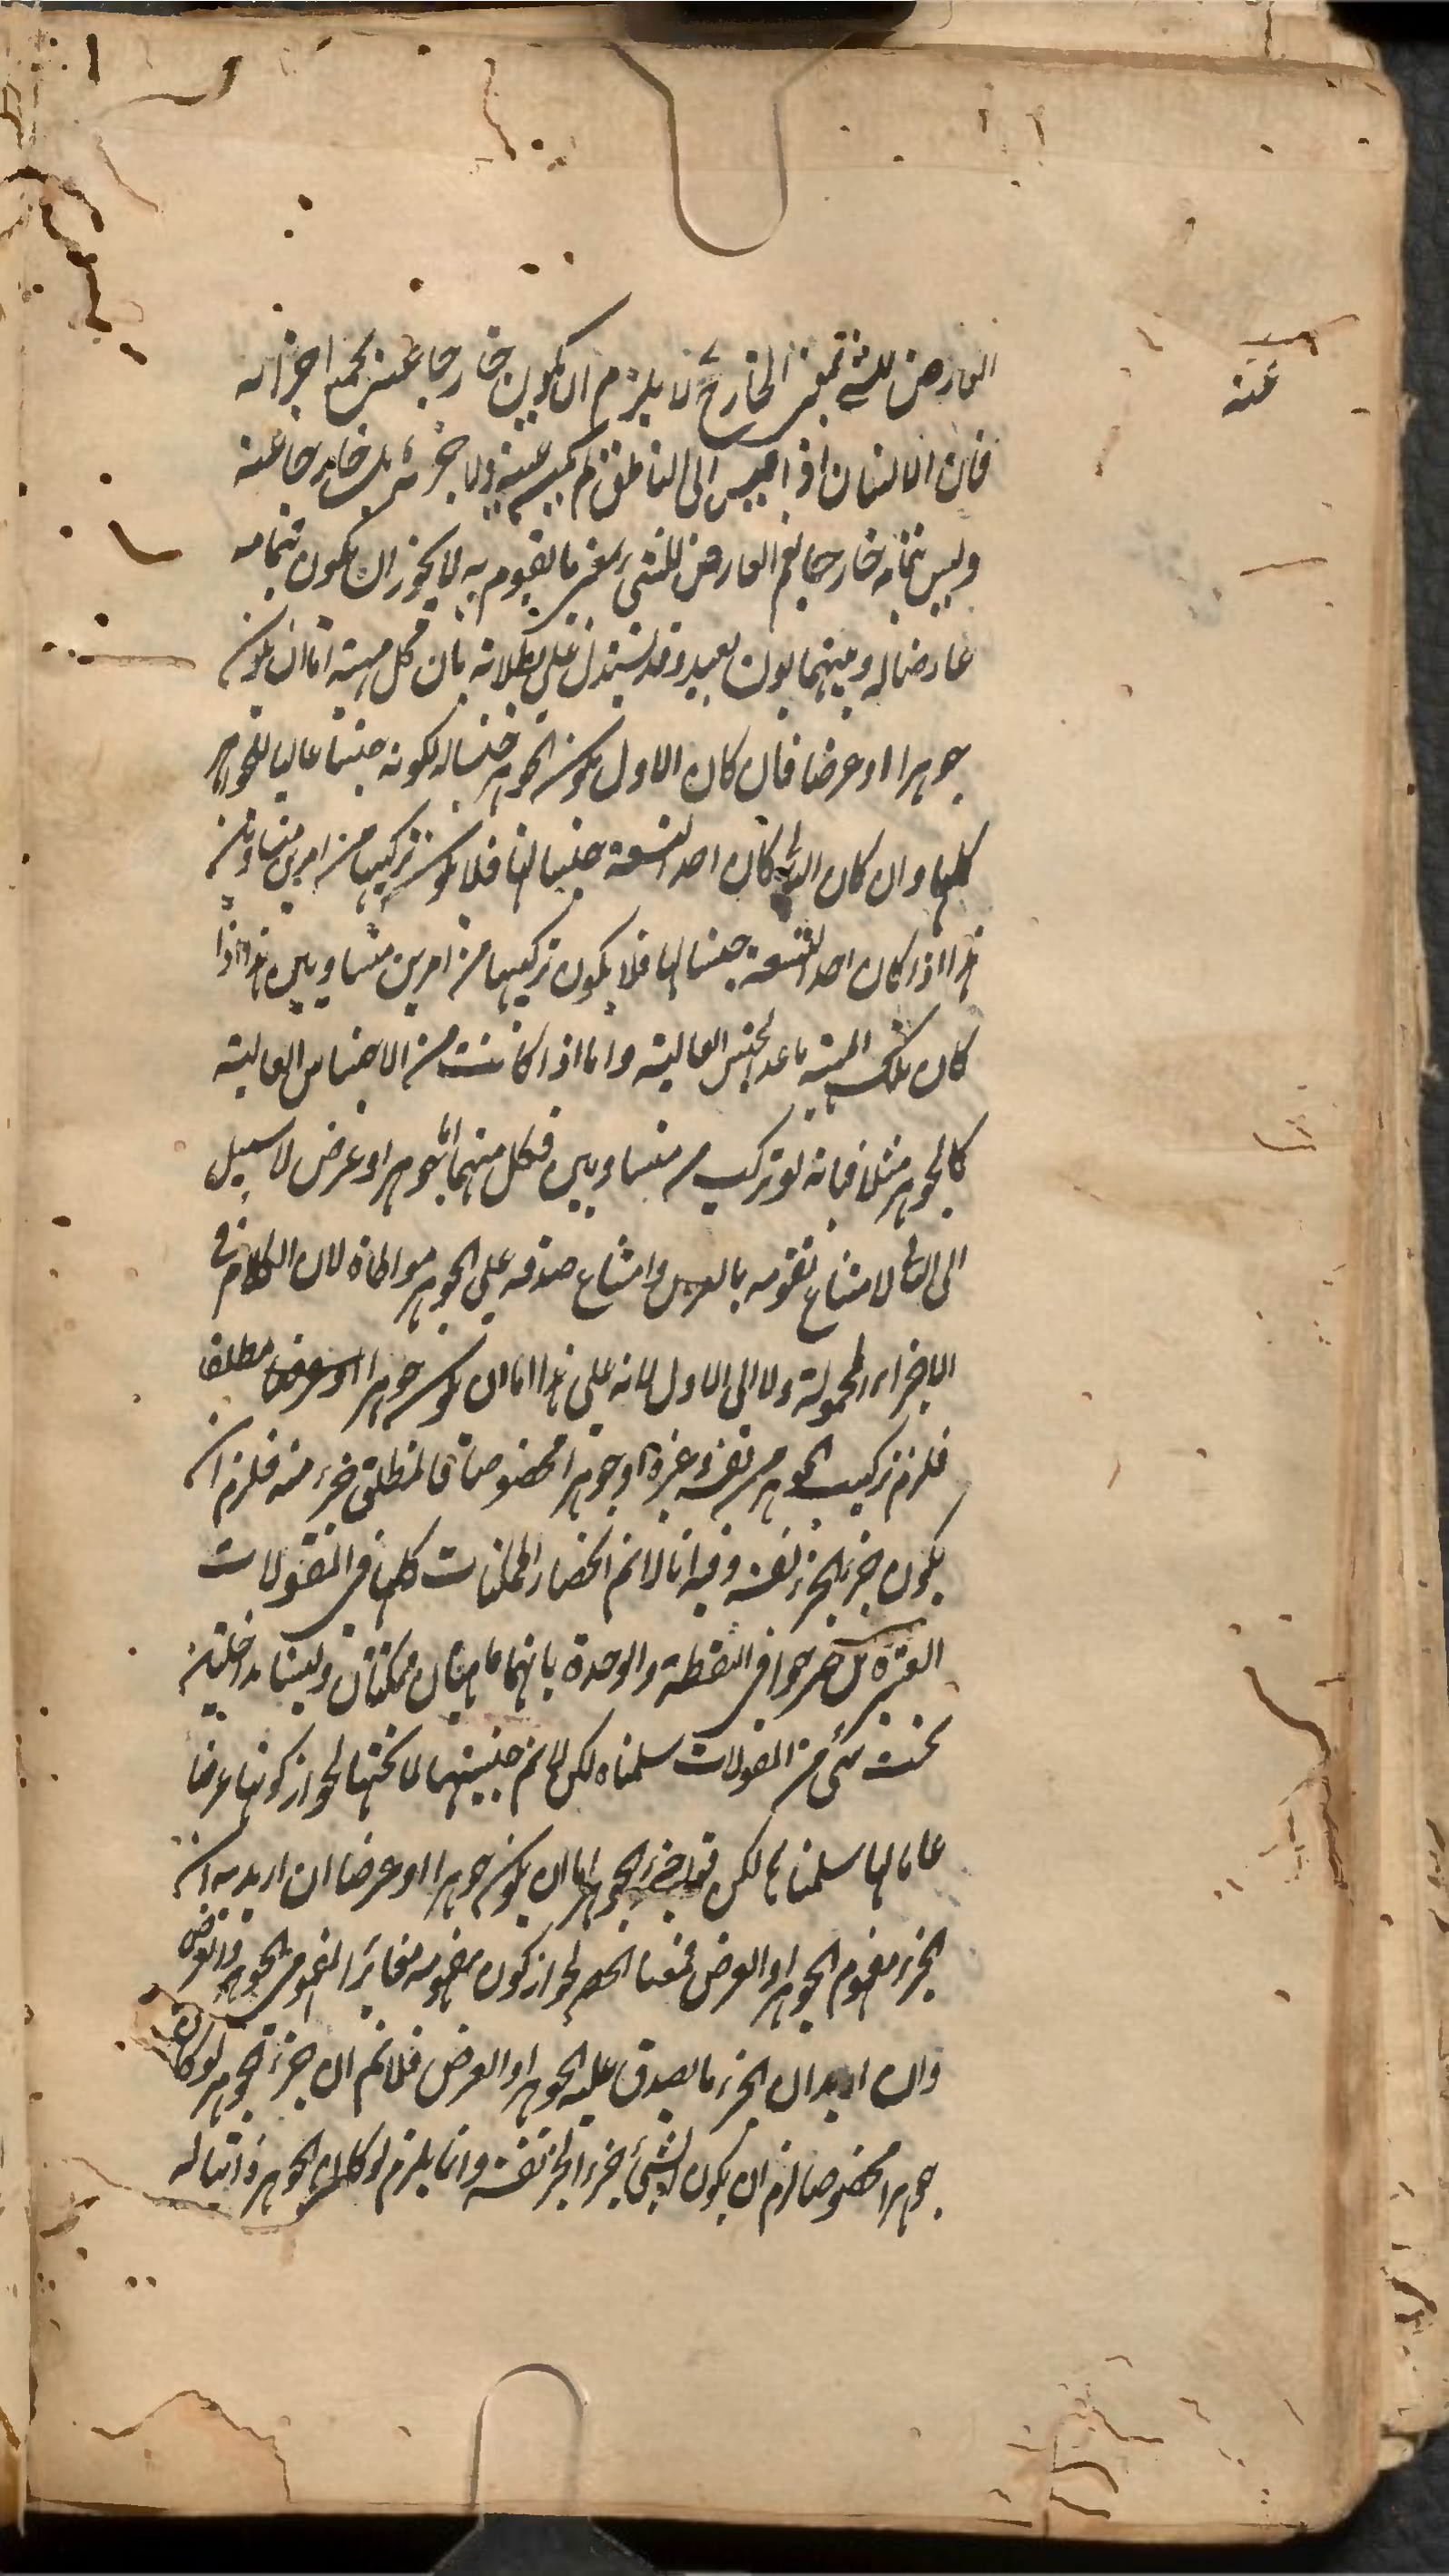 العارض للشئ بمعنى الخارج لا يلزم ان يكون خارجا عنه بجميع اجزائه
عنه
فان الانسان اذا قيس الى الناطق لم يكن عينه ولا جزئه بل خارجا عنه
وليس بتمامه خارجا نعم العارض للشئ بمعنى ما يقوم به لا يجوز ان يكون بتمامه
عارضا له وبينهما بون بعيد وقد يستدل على بطلانه بان كل مهية اما ان يكون
جوهرا او عرضا فان كان الاول يكون الجوهر جنسا له لكونه جنسا عاليا للجواهر
كلها وان كان الثاني كان احد التسعة جنسا لها فلا يكون تركيبها من امرين متساويين
هذا اذا كان احد التسعة جنسا لها فلا يكون تركيبها من امرين متساويين هذا اذا
كان تلك المهية ما عد الجنس العالية واما اذا كانت من الاجناس العالية
كالجوهر مثلا فبانه لو تركب من متساويين فكل منهما اما جوهر او عرض لا سبيل
الى الثاني لامتناع تقومه بالعرض وامتناع صدقه على الجوهر مواطاة لان الكلام في
الاجزاء المحمولة ولا الى الاول لانه على هذا اما ان يكون جوهرا او عرضا مطلقا
فلزم تركيب الجوهر من نفسه وغيره او جوهرا مخصوصا فالمطلق جزء منه فلزم ان
يكون جزء الجزء نفسه وفيه انا لا نم انحصار الممكنات كلها في المقولات
العشرة بل صرحوا في النقطة والوحدة بانهما ماهيتان ممكنتان وليستا بداخلتين
تحت شئ من المقولات سلمناه لكن لا نم جنسيتها لما تحتها لجواز كونها عرضا
عاما لها سلمناه لكن قوله جزء الجوهر اما ان يكون جوهرا او عرضا ان اريد به ان
الجزء مفهوم الجوهر او العرض فمنعنا الحصر لجواز كون مفهومه مغايرا لمفهومي الجوهر والعرض
وان اريد ان الجزء ما يصدق عليه الجوهر او العرض فلا نم ان جزء الجوهر لو كان
جوهرا مخصوصا لزم ان يكون الشئ جزء الجزء نفسه وانما يلزم لو كان الجوهر ذاتيا له